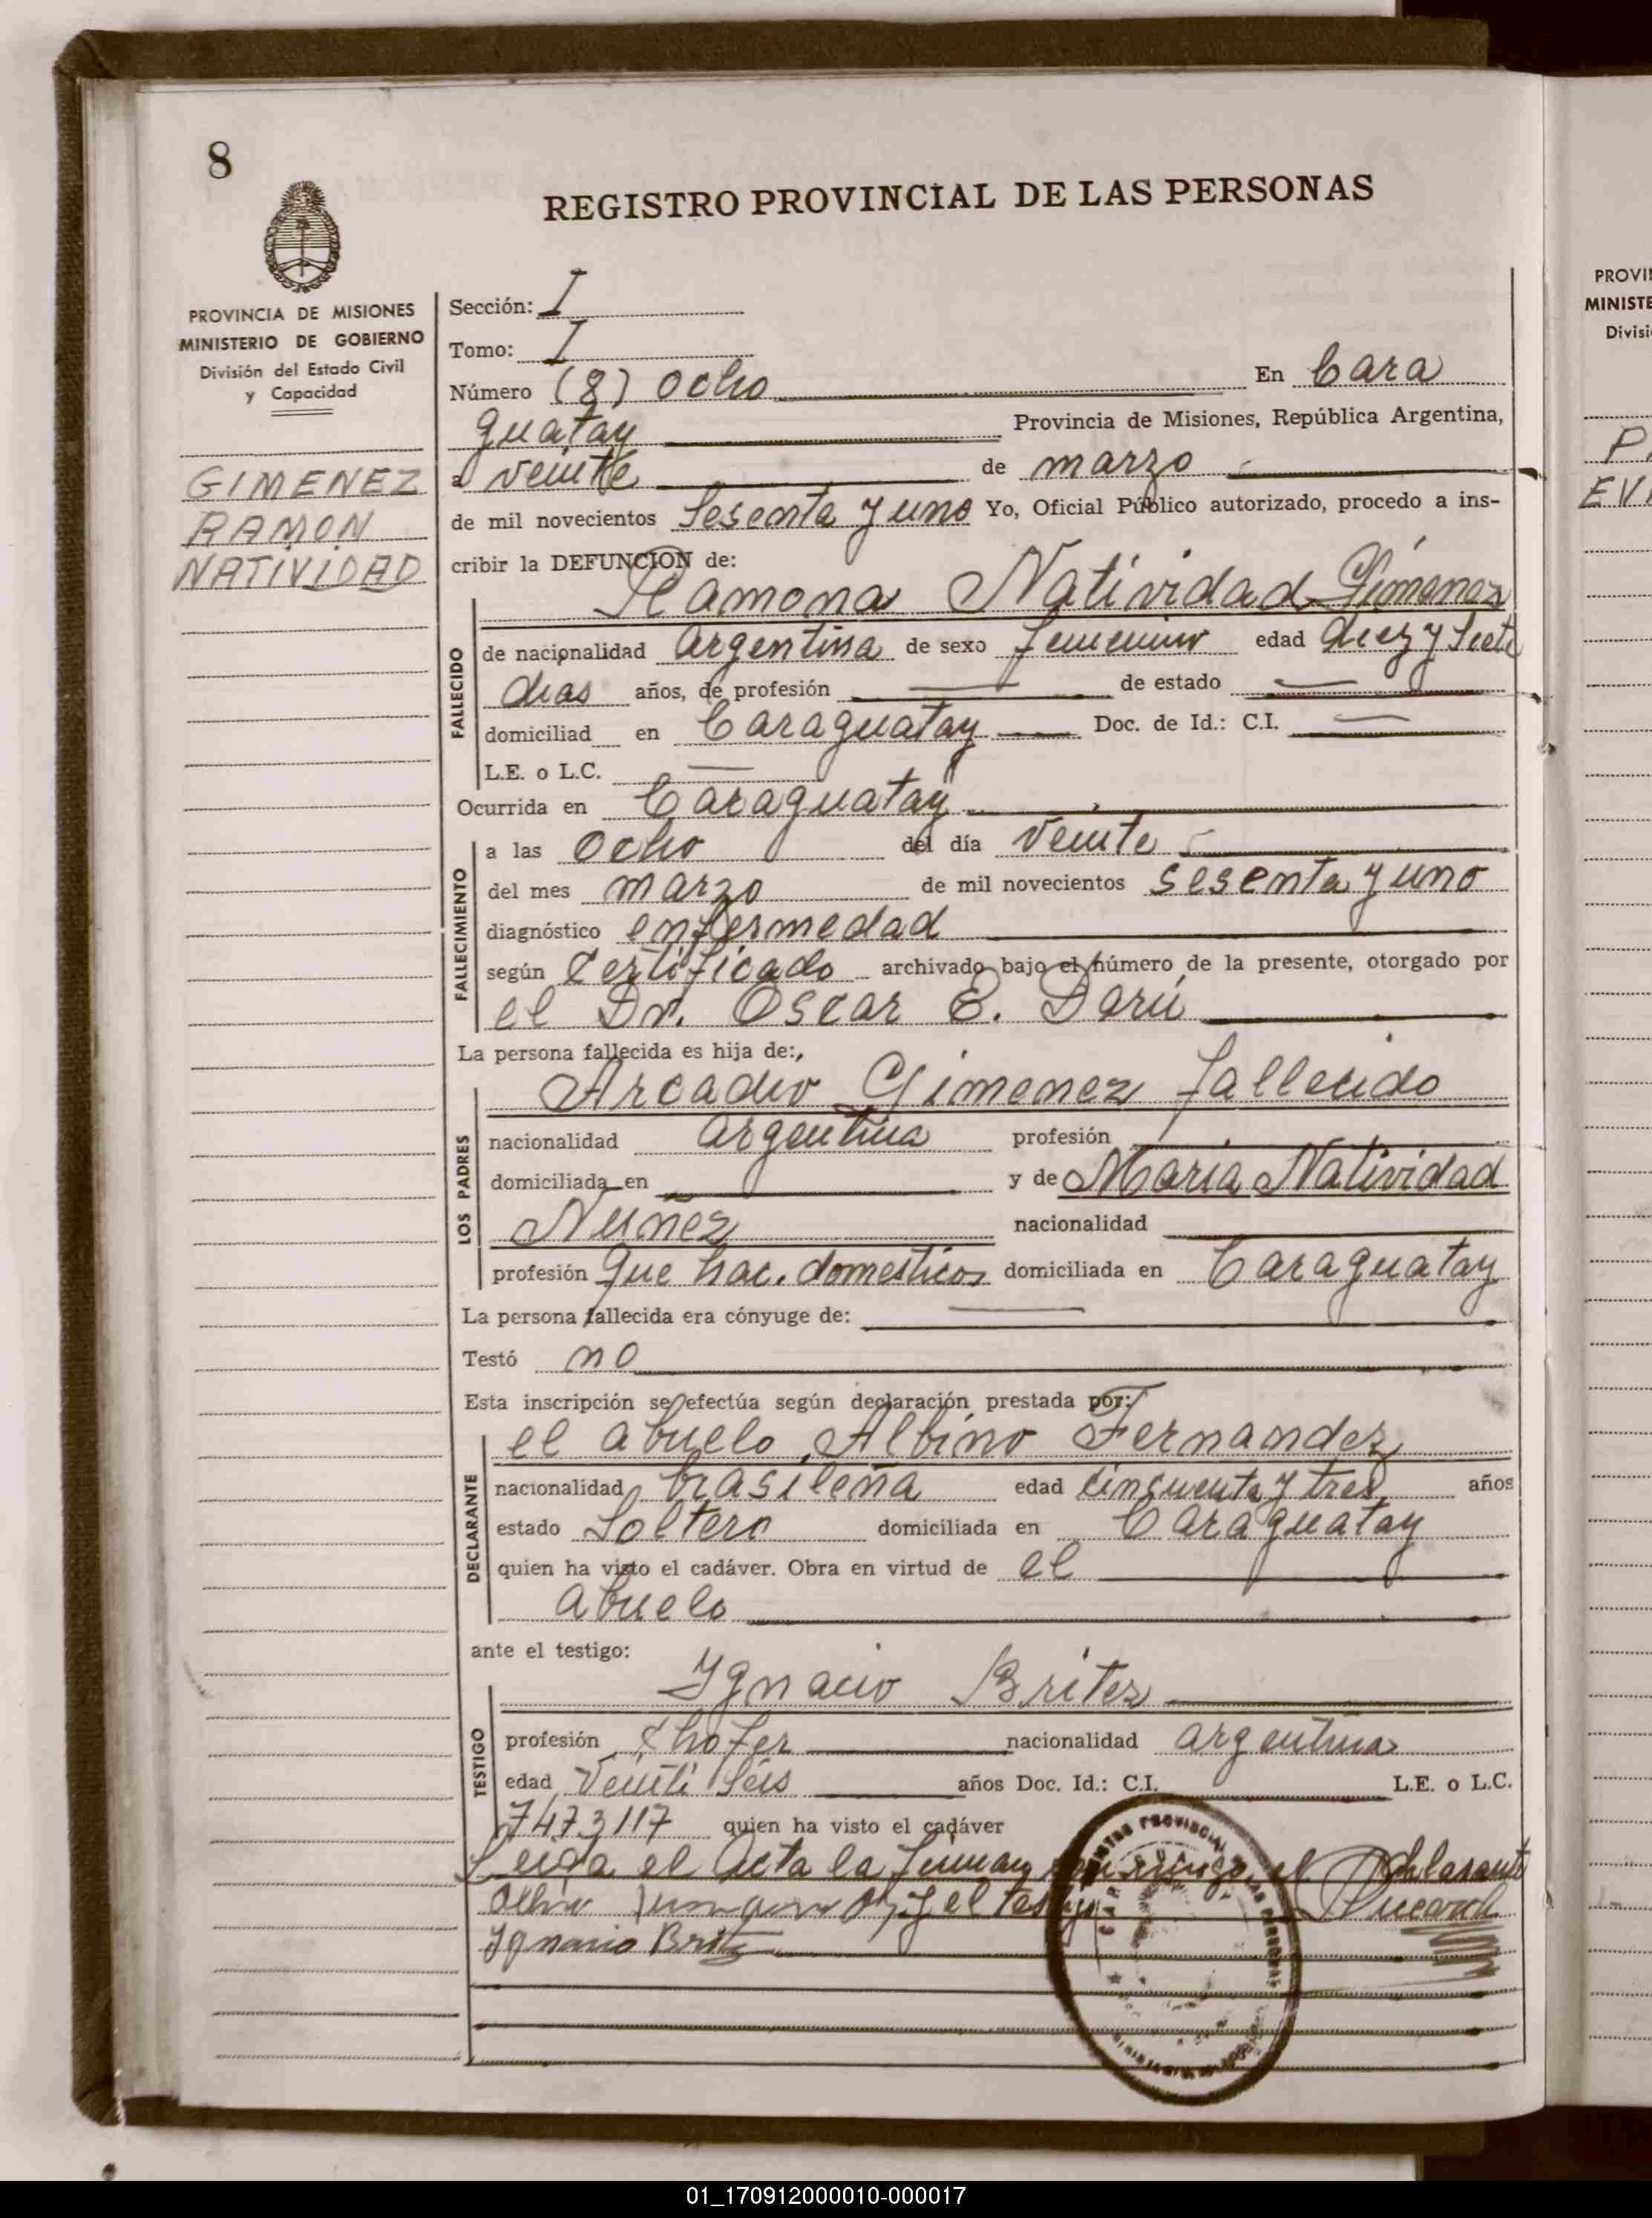 8
REGISTRO PROVINCIAL DE LAS PERSONAS
PROVINCIA DE MISIONES
MINISTERIO DE GOBIERNO
División del Estado Civil
y Capacidad
GIMENEZ
RAMON
NATIVIDAD
Sección: I
Tomo: I
Número (8) Ocho En Cara
guatay Provincia de Misiones, República Argentina,
a veinte de marzo
de mil novecientos Sesenta y uno Yo, Oficial Público autorizado, procedo a ins-
cribir la DEFUNCION de:
Ramona Natividad Gimenez
FALLECIDO
de nacionalidad Argentina de sexo femenino edad diez y siete
dias años, de profesión de estado
domiciliad en Caraguatay Doc. de Id.: C.I.
L.E. o L.C.
Ocurrida en Caraguatay
FALLECIMIENTO
a las Ocho del día veinte
del mes marzo de mil novecientos sesenta y uno
diagnóstico enfermedad
según Certificado archivado bajo el número de la presente, otorgado por
el Dr. Oscar E. Darú
La persona fallecida es hija de:,
LOS PADRES
Arcadio Gimenez fallecido
nacionalidad argentina profesión
domiciliada en y de Maria Natividad
Nuñez nacionalidad
profesión Que hac. domesticos domiciliada en Caraguatay
La persona fallecida era cónyuge de:
Testó no
Esta inscripción se efectúa según declaración prestada por:
DECLARANTE
el abuelo Albino Fernandez
nacionalidad brasileña edad cincuenta y tres años
estado Soltero domiciliada en Caraguatay
quien ha visto el cadáver. Obra en virtud de el
abuelo
ante el testigo:
TESTIGO
Ignacio Britez
profesión Chofer nacionalidad argentina
edad Veinti Seis años Doc. Id.: C.I. L.E. o L.C.
7473117 quien ha visto el cadáver
Leida el Acta la firman conmigo el Declarante
y el testigo
Ignacio Britez
PROVI
MINISTE
Divisi
P.
EV
01_170912000010-000017